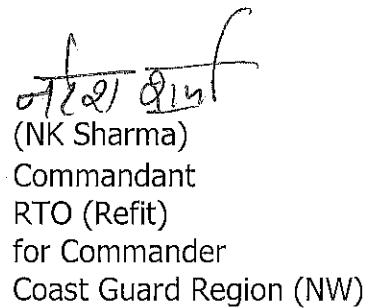 नरेश शर्मा
(NK Sharma)
Commandant
RTO (Refit)
for Commander
Coast Guard Region (NW)